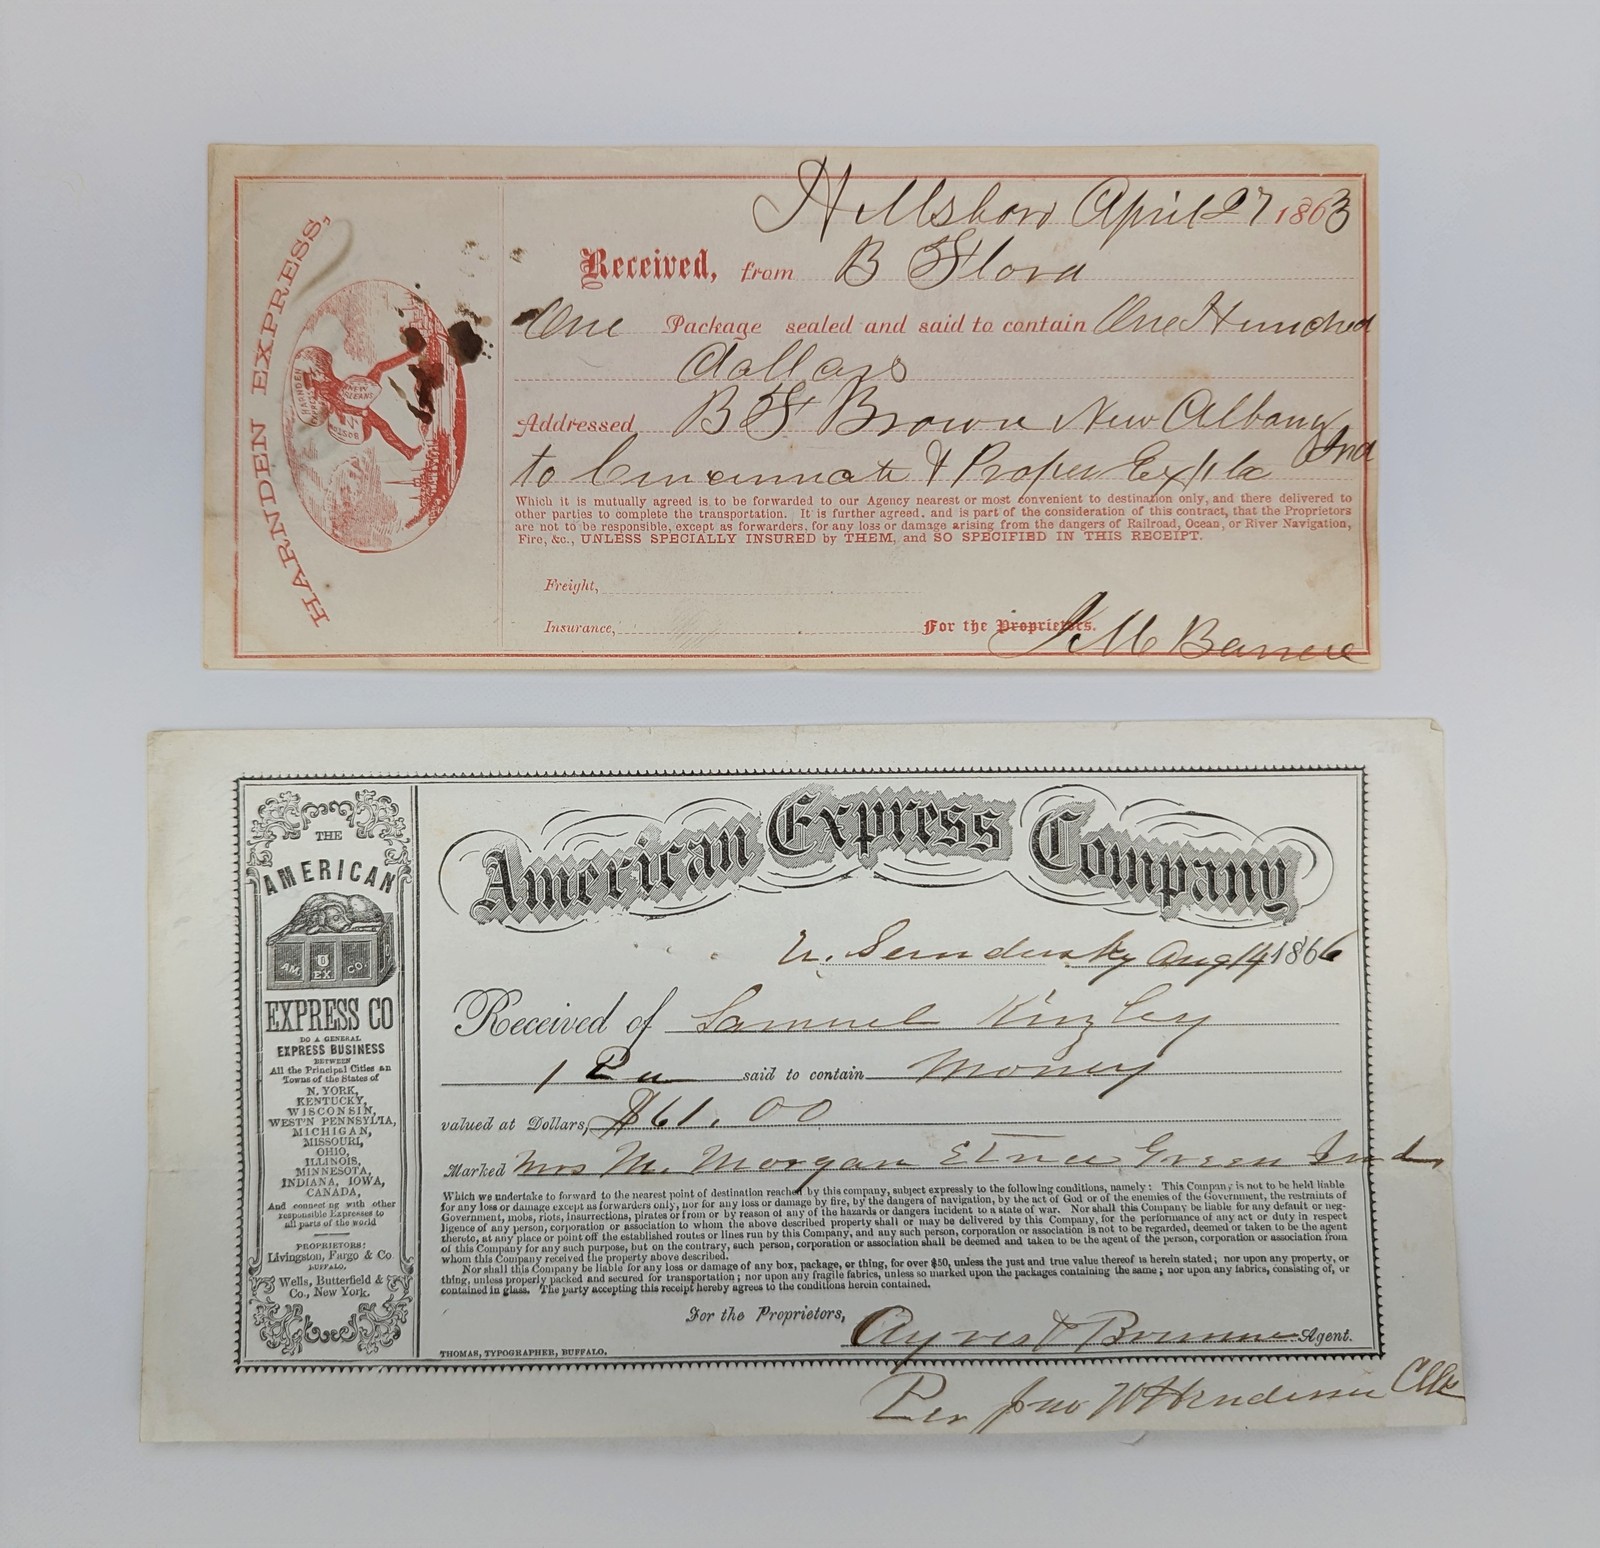 HARNDEN EXPRESS,
HARNDEN
EXPRESS
NEW
ORLEANS
BOSTON
Hillsboro April 27 1863
Received, from B F Lora
One Package sealed and said to contain One Hundred
dollars
Addressed B F Brown New Albany
Ind
to Cincinnati & Proper Exp
Which it is mutually agreed is to be forwarded to our Agency nearest or most convenient to destination only, and there delivered to
other parties to complete the transportation. It is further agreed, and is part of the consideration of this contract, that the Proprietors
are not to be responsible, except as forwarders, for any loss or damage arising from the dangers of Railroad, Ocean, or River Navigation,
Fire, &c., UNLESS SPECIALLY INSURED by THEM, and SO SPECIFIED IN THIS RECEIPT.
Freight,
Insurance,
For the Proprietors.
J M Barrere
THE
AMERICAN
AM. EX. CO.
EXPRESS CO
DO A GENERAL
EXPRESS BUSINESS
BETWEEN
All the Principal Cities an
Towns of the States of
N. YORK,
KENTUCKY,
WISCONSIN,
WEST'N PENNSYL'IA,
MICHIGAN,
MISSOURI,
OHIO,
ILLINOIS,
MINNESOTA,
INDIANA, IOWA,
CANADA,
And connecting with other
responsible Expresses to
all parts of the world
PROPRIETORS:
Livingston, Fargo & Co
BUFFALO,
Wells, Butterfield &
Co., New York.
American Express Company
U. Sandusky Aug 14 1866
Received of Samuel Kinzley
1 said to contain Money
valued at Dollars, $61.00
Marked Mrs M. Morgan Etna Green Ind
Which we undertake to forward to the nearest point of destination reached by this company, subject expressly to the following conditions, namely: This Company is not to be held liable
for any loss or damage except as forwarders only, nor for any loss or damage by fire, by the dangers of navigation, by the act of God or of the enemies of the Government, the restraints of
Government, mobs, riots, insurrections, pirates or from or by reason of any of the hazards or dangers incident to a state of war. Nor shall this Company be liable for any default or neg-
ligence of any person, corporation or association to whom the above described property shall or may be delivered by this Company, for the performance of any act or duty in respect
thereto, at any place or point off the established routes or lines run by this Company, and any such person, corporation or association is not to be regarded, deemed or taken to be the agent
of this Company for any such purpose, but on the contrary, such person, corporation or association shall be deemed and taken to be the agent of the person, corporation or association from
whom this Company received the property above described.
Nor shall this Company be liable for any loss or damage of any box, package, or thing, for over $50, unless the just and true value thereof is herein stated; nor upon any property, or
thing, unless properly packed and secured for transportation; nor upon any fragile fabrics, unless so marked upon the packages containing the same; nor upon any fabrics, consisting of, or
contained in glass. The party accepting this receipt hereby agrees to the conditions herein contained.
For the Proprietors,
Ayres & Agent.
THOMAS, TYPOGRAPHER, BUFFALO,
Per Jno W Henderson Clk